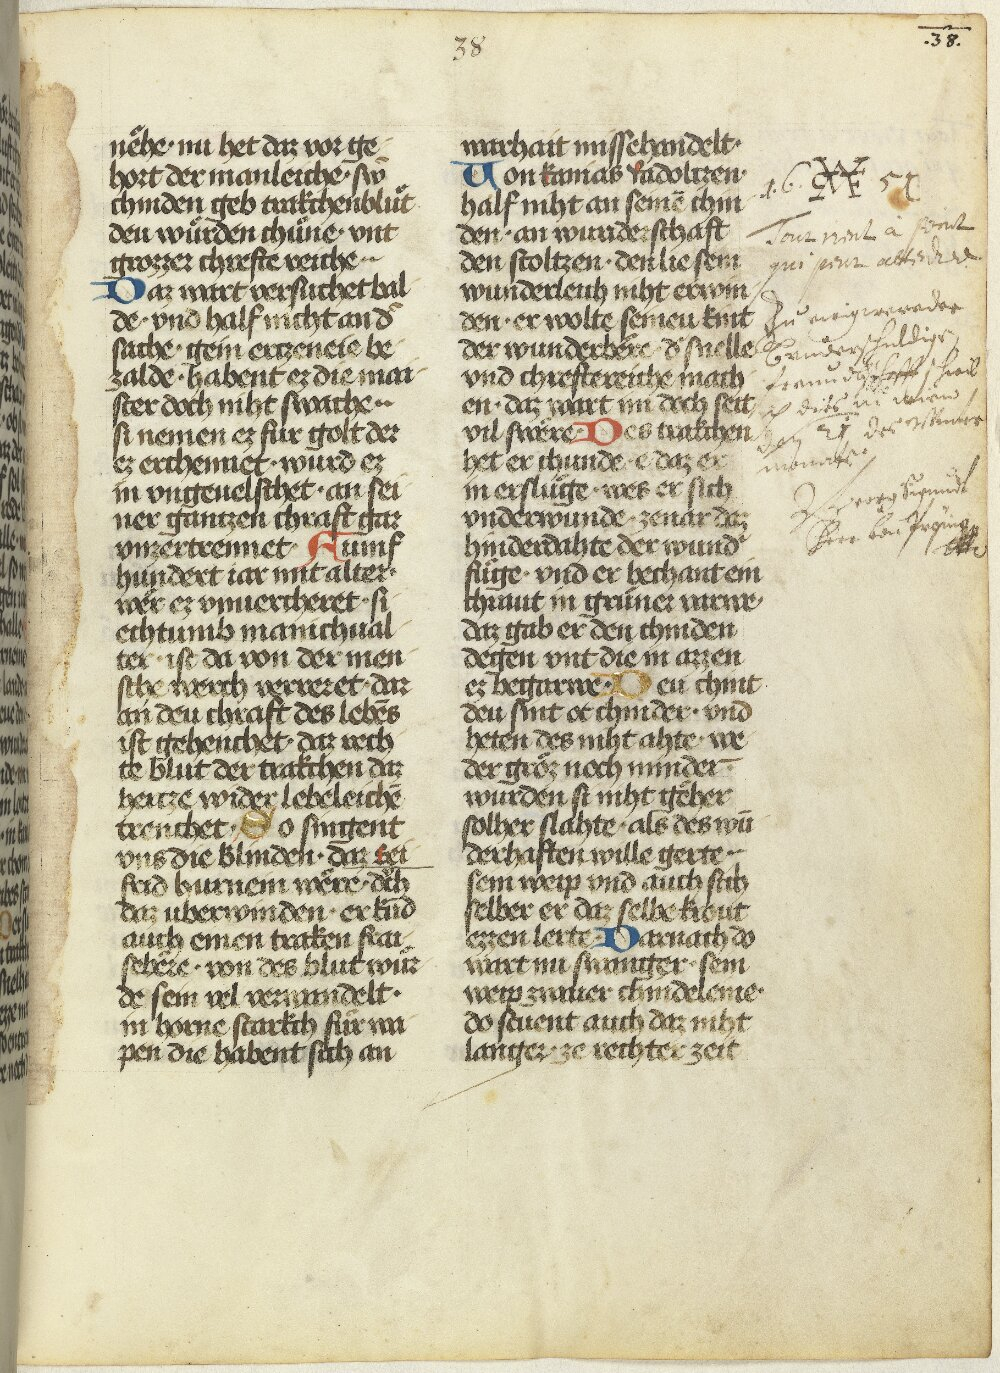 38
.38.
nêhe· nu het daz vor ge
hort der manleiche· sw̄
chinden geb trakchenblůt
deu wůrden chůne· vnt
grozzer chrefte reiche··
Daz wart versuchet bal
de· vnd half nicht an d̕
sache· gein ertzeneie be
zalde· habent ez die mai
ster doch niht swache··
si nemen ez fur golt der
ez erchennet· wurd ez
in vngeuelschet· an sei
ner gantzen chraft gar
vnzertrennet· Fumf
hundert iar mit alter·
wêr ez vnuercheret· si
echtumb manichual
ter· ist da von der men
sche werch verreret· daz
an deu chraft des lebēs
ist gehenchet· daz rech
te blut der trakchen daz
hertze wider lebeleichē
trenchet· So singent
vns die blinden· daz sei
frid hurnein wêre· doch
daz uberwinden· er kūd
auch einen traken frai
sebêre· von des blut wůr
de sein vel verwandelt·
in horne starkch fůr wa
pen die habent sich an
warhait missehandelt·
Von kanias fadoltzen·
half niht an seinē chin
den· an wunderschaft
den stoltzen· den lie sein
wunderleich niht erwin
den· er wolte seineu kint
der wunderbêre· d̕ snelle
vnd chreftereiche mach
en· daz wart im doch seit
vil swêre· Des trakchen
het er chunde· e daz er
in ersluge· wes er sich
vnderwunde· zenar daz
hinderdahte der wund̕
fůge· vnd er bechant ein
chraut in grůner varwe·
daz gab er den chinden
degen vnt die in azzen
ez begarwe· Deu chint
deu sint ot chinder· vnd
heten des niht ahte· we
der grôz noch minder
wurden si niht gêher
solher slahte· als des wū
derhaften wille gerte··
sein weip vnd auch sich
selber er daz selbe krout
ezzen lerte· Darnach do
wart nu swanger· sein
weip zwaier chindeleine·
do stuent auch daz niht
langer· ze rechter zeit
16 51
Tout vient à point
qui peut attendre
Zu
schuldiger
den 21 des
monats